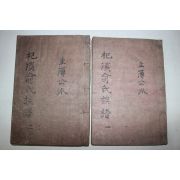 主簿公派
杞溪兪氏族譜 一
主簿公派
杞溪兪氏族譜 二